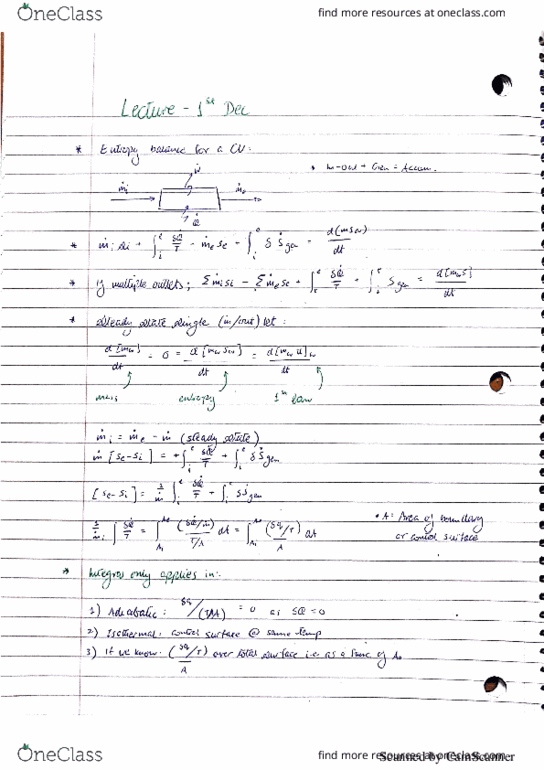 OneClass
find more resources at oneclass.com
Lecture - 1st Dec
* Entropy balance for a CV:
* In-out + Gen = Accum.
Ẇ
ṁi ṁe
Q̇
* ṁi si + ∫i^e δQ̇/T - ṁe se + ∫i^e δṠgen = d(mscv)/dt
* If multiple outlets; Σṁisi - Σṁese + ∫i^e δQ̇/T + ∫i^e Sgen = d[mcvs]/dt
* Steady state single (in/out)let:
d[mcv]/dt = 0 = d[mcv scv]/dt = d[mcv u]cv/dt
mass entropy 1st law
ṁi = ṁe = ṁ (steady state)
ṁ[se-si] = +∫i^e δQ̇/T + ∫i^e δṠgen
[se-si] = 1/ṁ ∫i^e δQ̇/T + ∫i^e δsgen
∫ δQ̇/T = ∫Ai^Ae (δQ̇/ṁ)/(T/A) dA = ∫Ai^Ae (δq/T)/A dA
* A: Area of boundary
or control surface
* Integral only applies in:
1) Adiabatic: δq/(TAA) = 0 as δQ = 0
2) Isothermal: control surface @ same temp
3) If we know: (δq/T)/A over total surface i.e. as a func of A
OneClass
find more resources at oneclass.com
Scanned by CamScanner